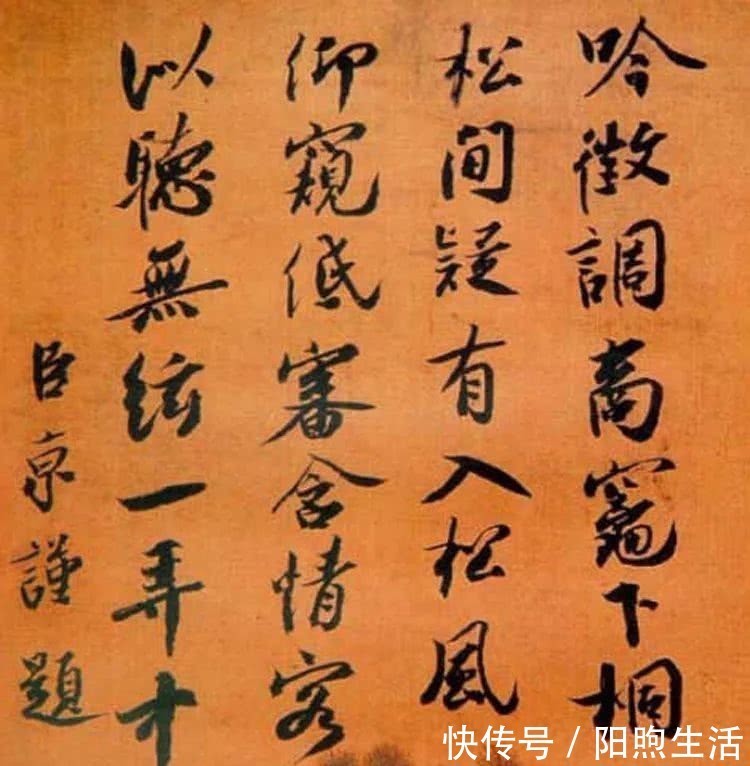 吟徵調商竈下桐
松間疑有入松風
仰窺低審含情客
似聽無絃一弄中
臣京謹題
快传号 / 阳煦生活